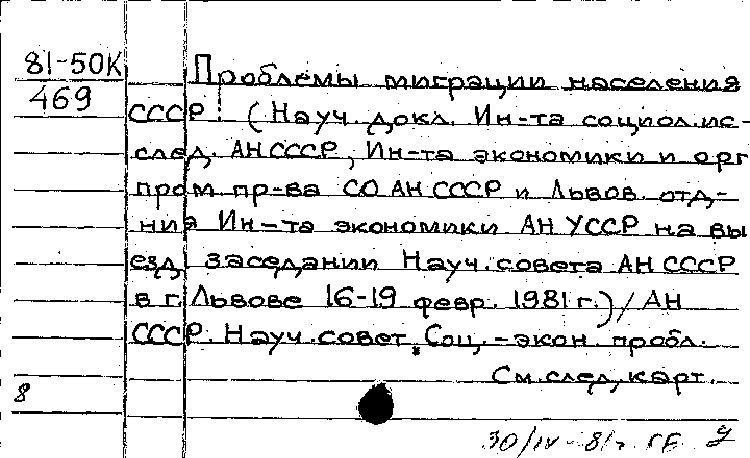 81-50К
469
Проблемы миграции населения
СССР: (Науч. докл. Ин-та социол. ис-
след. АН СССР, Ин-та экономики и орг
пром пр-ва СО АН СССР и Львов. отд-
ния Ин-та экономики АН УССР на вы
езд заседании Науч. совета АН СССР
в г. Львове 16-19 февр. 1981 г.) / АН
СССР. Науч. совет "Соц.-экон. пробл.
См. след. карт.
8
30/IV-81г.